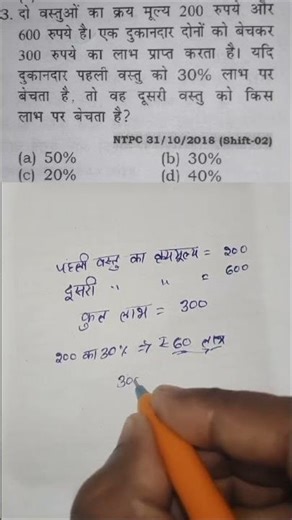 3. दो वस्तुओं का क्रय मूल्य 200 रुपये और
600 रुपये है। एक दुकानदार दोनों को बेचकर
300 रुपये का लाभ प्राप्त करता है। यदि
दुकानदार पहली वस्तु को 30% लाभ पर
बेचता है, तो वह दूसरी वस्तु को किस
लाभ पर बेचता है?
NTPC 31/10/2018 (Shift-02)
(a) 50% (b) 30%
(c) 20% (d) 40%
पहली वस्तु का क्रयमूल्य = 200
दूसरी " " = 600
कुल लाभ = 300
200 का 30% ⇒ ₹ 60 लाभ
300